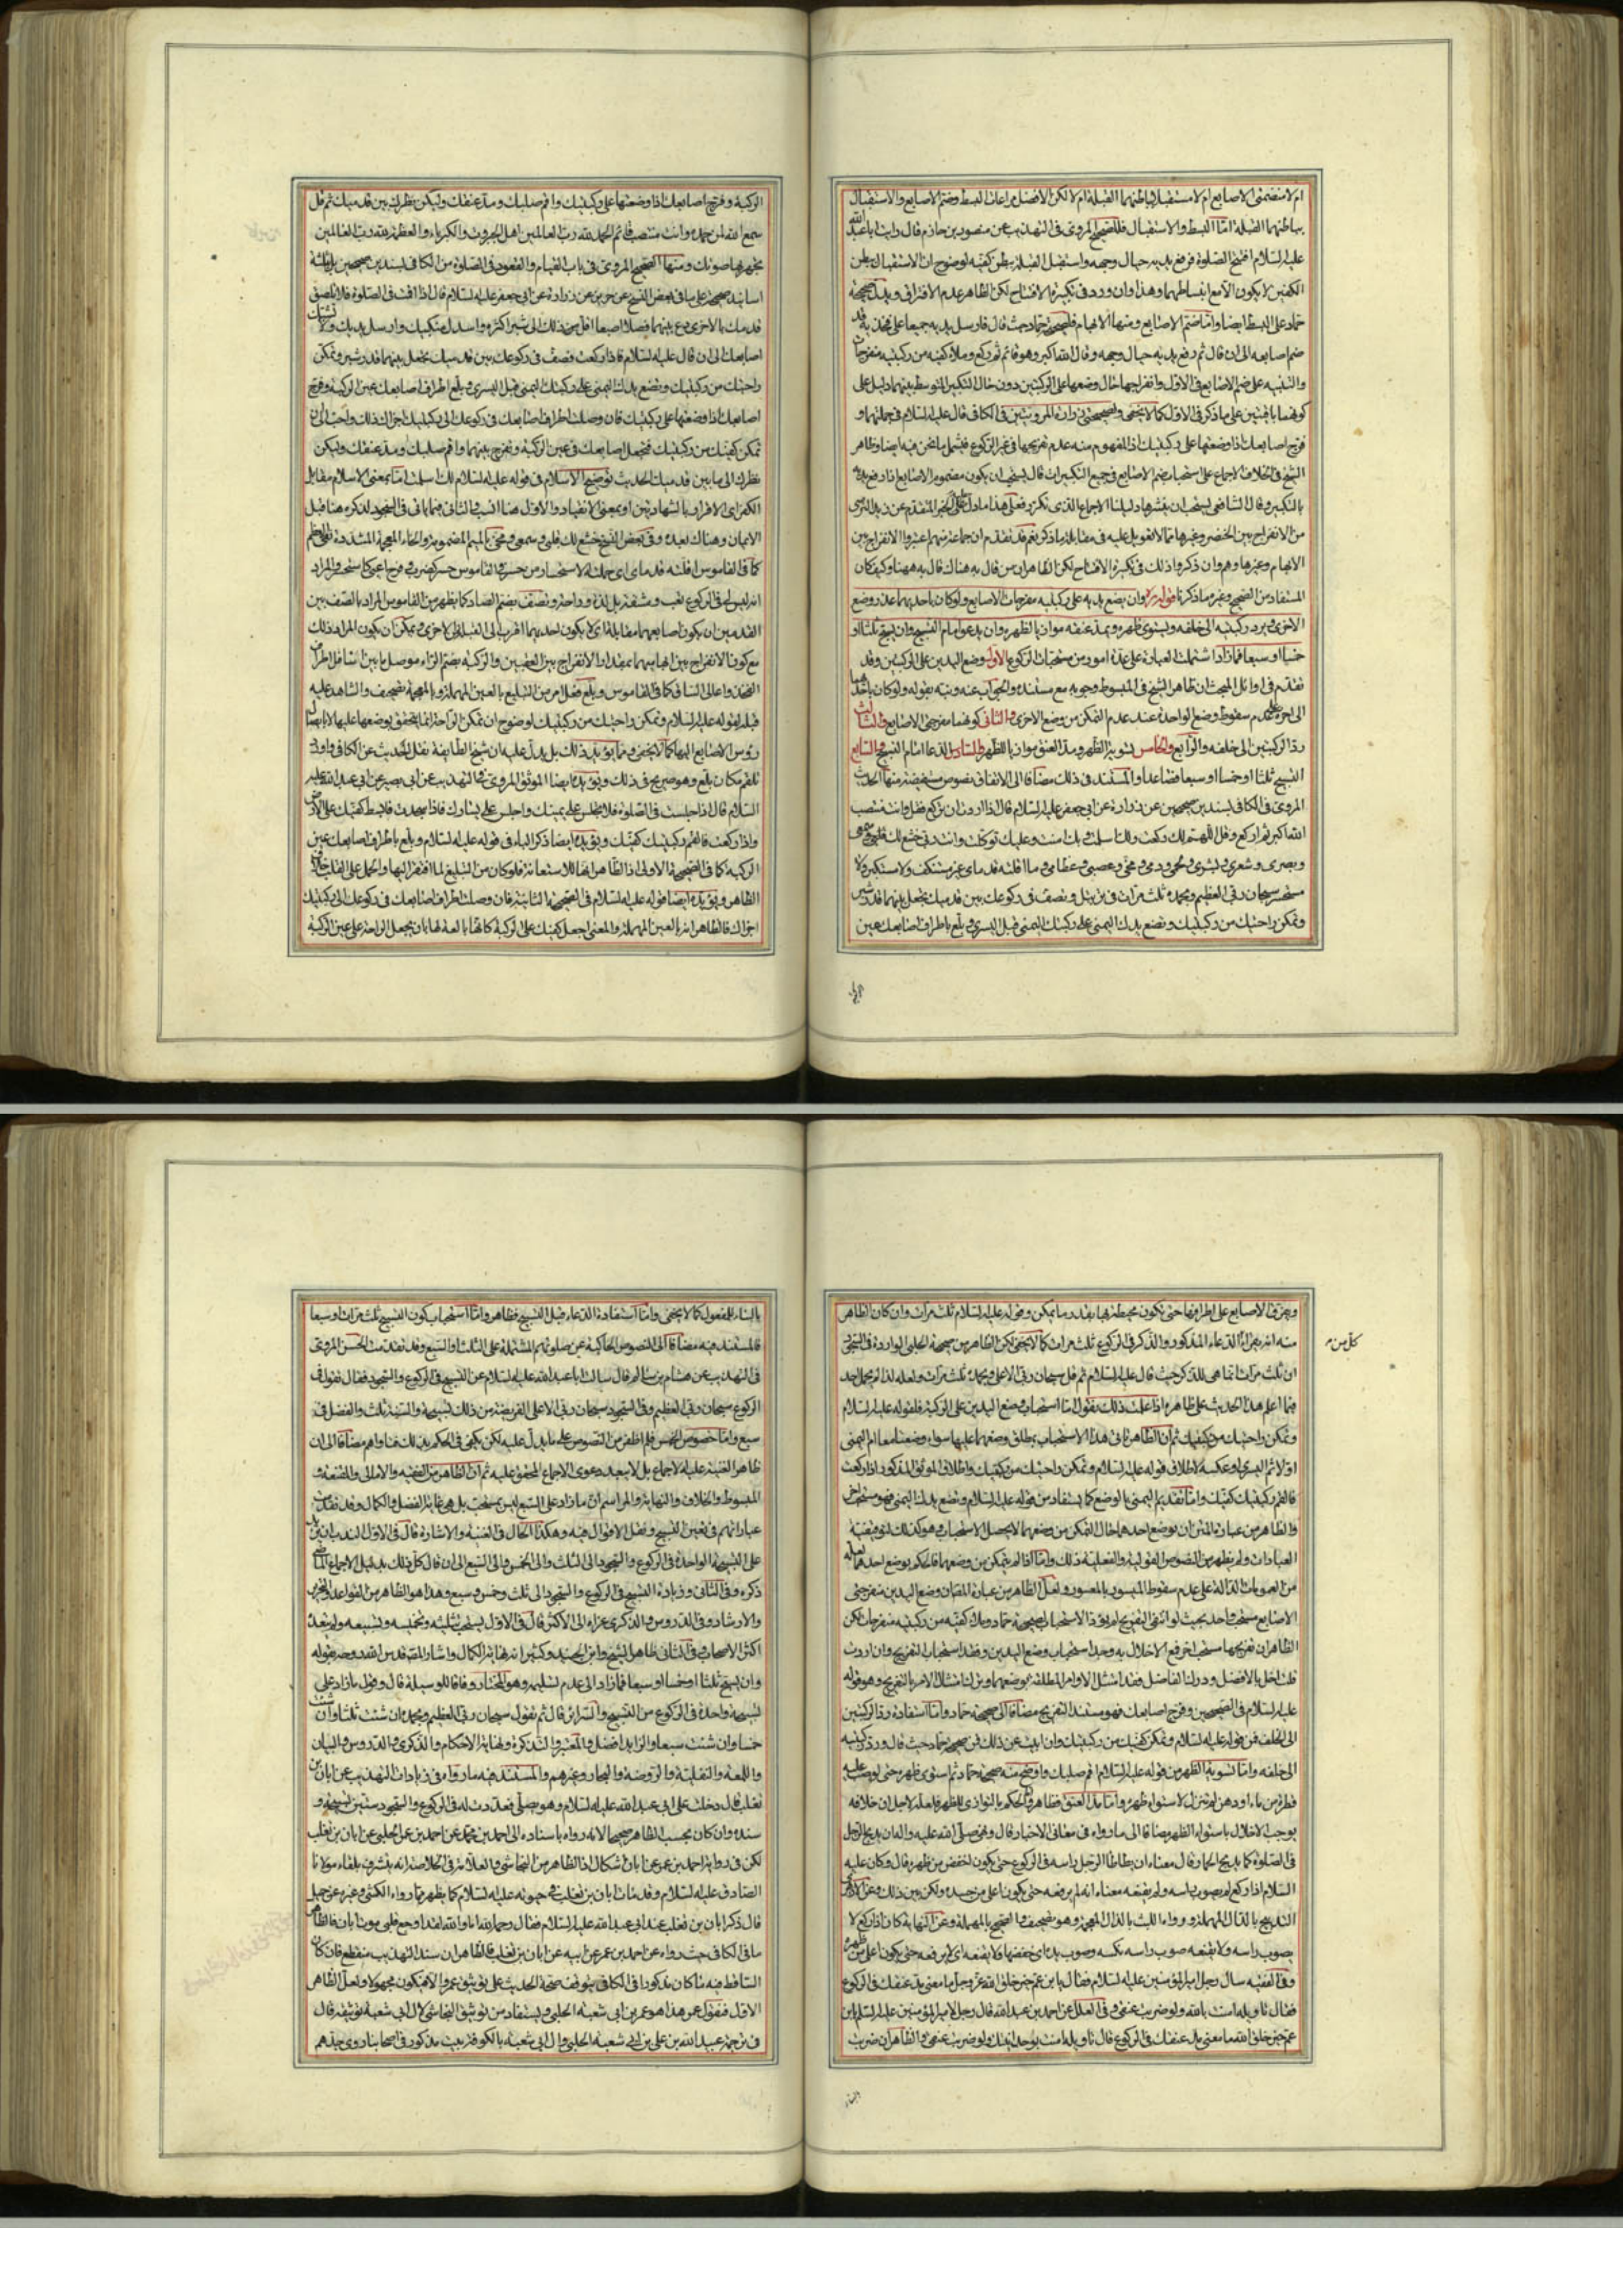 ام لا منضمتى الاصابع ام لا مستقبلا بباطنهما القبلة ام لا لكن الافضل مراعات البسط وضم الاصابع والاستقبال
بباطنهما القبلة امّا البسط والاستقبال فللصحيح المروى فى التهذيب عن منصور بن حازم قال رايت ابا عبد الله
عليه السلام افتتح الصلوة فرفع يديه حيال وجهه واستقبل القبلة ببطن كفيه لوضوح ان الاستقبال ببطن
الكفين لا يكون الا مع انبساطهما وهذا وان ورد فى تكبيرة الافتتاح لكن الظاهر عدم الافتراق
حماد على البسط ايضا وامّا ضم الاصابع ومنها الابهام فلصحيحة حماد حيث قال فارسل يديه جميعا على فخذيه قد
ضم اصابعه الى ان قال ثم رفع يديه حيال وجهه وقال الله اكبر وهو قائم ثم ركع وملأ كفيه من ركبتيه منفرجات
والتنبيه على ضم الاصابع فى الاول وانفراجها حال وضعها على الركبتين دون حال التكبير المتوسط بينهما دليل على
كونهما باقيتين على ما ذكر فى الاول كما لا يخفى ولصحيحتى زرارة المرويتين فى الكافى قال عليه السلام فى جملتهما و
فرج اصابعك اذا وضعتها على ركبتيك اذ المفهوم منه عدم تفريجها فى غير الركوع فيشمل ما نحن فيه ايضا وظاهر
الشيخ فى الخلاف الاجماع على استحباب ضم الاصابع فى جميع التكبيرات قال يستحب ان يكون مضموم الاصابع اذا رفع يديه
بالتكبير وقال الشافعى يستحب ان ينشرها دليلنا الاجماع الذى تكرر فعلى هذا ما دل على الخبر المتقدم عن زيد النرسى
من الانفراج بين الخنصر وغيرها مما لا تعويل عليه فى مقابلة ما ذكر نعم قد تقدم ان جماعة منهم اعتبروا الانفراج بين
الابهام وغيرها وهم وان ذكروا ذلك فى تكبيرة الافتتاح لكن الظاهر ان من قال به هناك قال به ههنا وكيف كان
المستفاد من الصحيح وغيره ما ذكرنا قوله وان يضع يديه على ركبتيه مفرجات الاصابع ولو كان باحديهما عذر وضع
الاخرى ويرد ركبتيه الى خلفه ويسوى ظهره ويمد عنقه موازيا لظهره وان يدعو امام التسبيح وان يسبح ثلثا او
خمسا او سبعا فما زاد اشتملت العبارة على عدة امور من مستحبات الركوع الاول وضع اليدين على الركبتين وقد
تقدم فى اوائل المبحث ان ظاهر الشيخ فى المبسوط وجوبه مع مستنده والجواب عنه ونبه بقوله ولو كان باحديهما
الى اخره على عدم سقوط وضع الواحدة عند عدم التمكن من وضع الاخرى والثانى كونهما مفرجتى الاصابع والثالث
رد الركبتين الى خلفه والرابع والخامس تسوية الظهر ومد العنق موازيا للظهر والسادس الدعاء امام التسبيح والسابع
التسبيح ثلثا او خمسا او سبعا فصاعدا والمستند فى ذلك مضافا الى الاتفاق نصوص مستفيضة منها الحديث
المروى فى الكافى بسندين صحيحين عن زرارة عن ابى جعفر عليه السلام قال اذا اردت ان تركع فقل وانت منتصب
الله اكبر ثم اركع وقل اللهم لك ركعت ولك اسلمت وبك امنت وعليك توكلت وانت ربى خشع لك قلبى وسمعى
وبصرى وشعرى وبشرى ولحمى ودمى ومخى وعصبى وعظامى وما اقلته قدماى غير مستنكف ولا مستكبر ولا
مستحسر سبحان ربى العظيم وبحمده ثلث مرات فى ترتيل وتصف فى ركوعك بين قدميك تجعل بينهما قدر شبر
وتمكن راحتيك من ركبتيك وتضع يدك اليمنى على ركبتك اليمنى قبل اليسرى وبلع باطراف اصابعك عين
الركبة وفرج اصابعك اذا وضعتها على ركبتيك واقم صلبك ومد عنقك وليكن نظرك بين قدميك ثم قل
سمع الله لمن حمده وانت منتصب قائم الحمد لله رب العالمين اهل الجبروت والكبرياء والعظمة لله رب العالمين
تجهر بها صوتك ومنها الصحيح المروى فى باب القيام والقعود فى الصلوة من الكافى بسندين صحيحين بل بثلثة
اسانيد صحيحة على ما فى بعض النسخ عن حريز عن زرارة عن ابى جعفر عليه السلام قال اذا اقمت فى الصلوة فلا تلصق
قدمك بالاخرى دع بينهما فصلا اصبعا اقل من ذلك الى شبر اكثره واسدل منكبيك وارسل يديك ولا تشبك
اصابعك الى ان قال عليه السلام فاذا ركعت فصف فى ركوعك بين قدميك تجعل بينهما قدر شبر وتمكن
راحتيك من ركبتيك وتضع يدك اليمنى على ركبتك اليمنى قبل اليسرى وبلع اطراف اصابعك عين الركبة وفرج
اصابعك اذا وضعتها على ركبتيك فان وصلت اطراف اصابعك فى ركوعك الى ركبتيك اجزاك ذلك واحب الى ان
تمكن كفيك من ركبتيك فتجعل اصابعك فى عين الركبة وتفرج بينهما واقم صلبك ومد عنقك وليكن
نظرك الى ما بين قدميك الحديث توضيح الاسلام فى قوله عليه السلام لك اسلمت اما بمعنى الاسلام مقابل
الكفر اى الاقرار بالشهادتين او بمعنى الانقياد والاول هنا انسب والثانى فيما ياتى فى السجود لذكره هنا قبل
الايمان وهناك بعده وفى بعض النسخ خشع لك قلبى وسمعى ومخى بالميم المضمومة والخاء المعجمة المشددة نقى العظم
كما فى القاموس اقلته قدماى اى حملته الاستحسار من حسر فى القاموس حسر كضرب وفرح اعيى كاستحسر والمراد
انه ليس لى فى الركوع تعب ومشقة بل لذة وراحة وتصف بضم الصاد كما يظهر من القاموس المراد بالصف بين
القدمين ان يكون اصابعهما مقابلة اى لا يكون احديهما اقرب الى القبلة من الاخرى ويمكن ان يكون المراد ذلك
مع كون الانفراج بين ابهاميهما بمقدار الانفراج بين العقبين والركبة بضم الراء موصل ما بين اسافل اطراف
الفخذ واعالى الساق كما فى القاموس وبلع فعل امر من التبليع بالعين المهملة وبالمعجمة تصحيف والشاهد عليه
قبله لقوله عليه السلام وتمكن راحتيك من ركبتيك لوضوح ان تمكن الراحة انما يتحقق بوضعها عليها لا بايصال
رؤس الاصابع اليها كما لا يخفى ومما يؤيد ذلك بل يدل عليه ان شيخ الطايفة نقل الحديث عن الكافى واورد
تلقم مكان بلع وهو صريح فى ذلك ويؤيده ايضا الموثق المروى فى التهذيب عن ابى بصير عن ابى عبد الله عليه
السلام قال اذا جلست فى الصلوة فلا تجلس على يمينك واجلس على يسارك فاذا سجدت فابسط كفيك على الارض
واذا ركعت فالقم ركبتيك كفيك ويؤيده ايضا ذكر الباء فى قوله عليه السلام وبلع باطراف اصابعك عين
الركبة كما فى الصحيحة الاولى اذ الظاهر انها للاستعانة فلو كان من التبليغ لما افتقر اليها والحمل على القلب خلاف
الظاهر ويؤيده ايضا قوله عليه السلام فى الصحيحة الثانية فان وصلت اطراف اصابعك فى ركوعك الى ركبتيك
اجزاك فالظاهر انه بالعين المهملة والمعنى اجعل كفيك على الركبة كانها بالعة لها بان يجعل الراحة على عين الركبة
ويفرق الاصابع على اطرافها حتى يكون محيطة بها بقدر ما يمكن وقوله عليه السلام ثلث مرات وان كان الظاهر
منه انه يقرا الدعاء المذكور والذكر فى الركوع ثلث مرات كما لا يخفى لكن الظاهر من صحيحة الحلبى الواردة فى السجود
كل من
ان ثلث مرات انما هى للذكر حيث قال عليه السلام ثم قل سبحان ربى الاعلى وبحمده ثلث مرات ولعله لذا لم يحمل احد
فيما اعلم هذا الحديث على ظاهره اذا علمت ذلك نقول امّا استحباب وضع اليدين على الركبة فلقوله عليه السلام
وتمكن راحتيك من ركبتيك ثم ان الظاهر تاتى هذا الاستحباب بمطلق وضعهما عليها سواء وضعتا معا ام اليمنى
اولا ثم اليسرى او عكسه لاطلاق قوله عليه السلام وتمكن راحتيك من ركبتيك واطلاق الموثق المذكور اذا ركعت
فالقم ركبتيك كفيك وامّا تقديم اليمنى بالوضع كما يستفاد من قوله عليه السلام وتضع يدك اليمنى فهو مستحب اخر
والظاهر من عبارة المتن ان بوضع احدهما حال التمكن من وضعهما لا يحصل الاستحباب وهو كذلك لتوقيفية
العبادات ولم يظهر من النصوص القولية والفعلية ذلك وامّا اذا لم يتمكن من وضعهما فالحكم بوضع احدهما لعله
من العمومات الدالة على عدم سقوط الميسور بالمعسور ولعل الظاهر من عبارة المقام ان وضع اليدين مفرجتى
الاصابع مستحب واحد بحيث لو انتفى التفريج لم يؤد الاستحباب لصحيحة حماد وملأ كفيه من ركبتيه منفرجات لكن
الظاهر ان تفريجها مستحب اخر فمع الاخلال به وجد استحباب وضع اليدين وفقد استحباب التفريج وان اردت
قلت اخل بالافضل ودرك الفاضل فقد امتثل الاوامر المطلقة بوضعهما وترك امتثال الامر بالتفريج وهو قوله
عليه السلام فى الصحيحين وفرج اصابعك فهو مستند التفريج مضافا الى صحيحة حماد وامّا استفادة رد الركبتين
الى الخلف فمن قوله عليه السلام وتمكن كفيك من ركبتيك وان ابيت عن ذلك فمن صحيحة حماد حيث قال ورد ركبتيه
الى خلفه وامّا تسوية الظهر من قوله عليه السلام اقم صلبك واوضح منه صحيحة حماد ثم سوى ظهره حتى لو صب عليه
قطرة من ماء او دهن لم تزل لاستواء ظهره وامّا مد العنق فظاهر والحكم بالتوازى للظهر فلعله لاجل ان خلافه
يوجب الاخلال باستواء الظهر مضافا الى ما رواه فى معانى الاخبار قال ونهى صلى الله عليه واله ان يدبح الرجل
فى الصلوة كما يدبح الحمار قال معناه ان يطاطا الرجل راسه فى الركوع حتى يكون اخفض من ظهره قال وكان عليه
السلام اذا ركع لم يصوب راسه ولم يقنعه معناه انه لم يرفعه حتى يكون اعلى من جسده ولكن بين ذلك وعن الازهرى
التدبيح بالدال المهملة ورواه الليث بالذال المعجمة وهو تصحيف والصحيح بالمهملة وعن النهاية كان اذا ركع لا
يصوب راسه ولا يقنعه صوب راسه نكسه وصوب يده اى خفضها ولا يقنعه اى لا يرفعه حتى يكون اعلى من ظهره
وفى الفقيه سال رجل امير المؤمنين عليه السلام فقال يا بن عم خير خلق الله عز وجل ما معنى مد عنقك فى الركوع
فقال تاويله امنت بالله ولو ضربت عنقى وفى العلل عن احمد بن عبد الله قال رجل لامير المؤمنين عليه السلام يابن
عم خير خلق الله ما معنى مد عنقك فى الركوع قال تاويله امنت بوحدانيتك ولو ضربت عنقى والظاهر ان ضربت
بالبناء للمفعول كما لا يخفى وامّا استفادة الدعاء قبل التسبيح فظاهر وامّا استحباب كون التسبيح ثلث مرات او سبعا
فالمستند فيه مضافا الى النصوص الحاكية عن صلوتهم المشتملة على الثلث والسبع وقد تقدمت الحسن المروى
فى التهذيب عن هشام بن سالم قال سالت ابا عبد الله عليه السلام عن التسبيح فى الركوع والسجود فقال تقول فى
الركوع سبحان ربى العظيم وفى السجود سبحان ربى الاعلى الفريضة من ذلك تسبيحة والسنة ثلث والفضل فى
سبع وامّا خصوص الخمس فلم اظفر من النصوص على ما يدل عليه لكن يكفى فى الحكم بذلك فتاواهم مضافا الى ان
ظاهر الغنية عليه الاجماع بل لا يبعد دعوى الاجماع المحقق عليه ثم ان الظاهر من الفقيه والامالى والمقنعة و
المبسوط والخلاف والنهاية والمراسم ان ما زاد على السبع ليس بمستحب بل هى غاية الفضل والكمال وقد تقدمت
عباراتهم فى تعيين التسبيح ونقل الاقوال فيه وهكذا الحال فى الغنية والاشارة قال فى الاول الندب ان يزيد
على التسبيحة الواحدة فى الركوع والسجود الى الثلث والى الخمس والى السبع الى ان قال كل ذلك بدليل الاجماع الماضى
ذكره وفى الثانى وزيادة التسبيح فى الركوع والسجود الى ثلث وخمس وسبع وهذا هو الظاهر من القواعد والتحرير
والارشاد وفى الدروس والذكرى عزاه الى الاكثر قال فى الاول يستحب تثليثه وتخميسه وتسبيعه ولم يتعده
اكثر الاصحاب وفى الثانى ظاهر الشيخ وابن الجنيد وكثير انه نهاية الكمال واشار المتن قدس الله روحه بقوله
وان يسبح ثلثا او خمسا او سبعا فما زاد الى عدم تسليمه وهو المختار وفاقا للوسيلة قال وقول ما زاد على
تسبيحة واحدة فى الركوع من التسبيح والسرائر قال ثم تقول سبحان ربى العظيم وبحمده ان شئت ثلثا وان شئت
خمسا وان شئت سبعا والزايد افضل والمعتبر والتذكرة ونهاية الاحكام والذكرى والدروس والبيان
واللمعة والنفلية والروضة والبحار وغيرهم والمستند فيه ما رواه فى زيادات التهذيب عن ابان بن
تغلب قال دخلت على ابى عبد الله عليه السلام وهو يصلى فعددت له فى الركوع والسجود ستين تسبيحة و
سنده وان كان بحسب الظاهر صحيحا لانه رواه باسناده الى احمد بن محمد عن احمد بن عمر الحلبى عن ابان بن تغلب
لكن فى رواية احمد بن عمر عن ابان اشكال اذ الظاهر من النجاشى والعلامة فى الخلاصة انه تشرف بلقاء مولانا
الصادق عليه السلام وقد مات ابان بن تغلب فى حيوته عليه السلام كما يظهر مما رواه الكشى وغيره عن جميل
قال ذكر ابان بن تغلب عند ابى عبد الله عليه السلام فقال رحمه الله اما والله لقد اوجع قلبى موت ابان فالظاهر
ما فى الكافى حيث رواه عن احمد بن عمر عن ابيه عن ابان بن تغلب فالظاهر ان سند التهذيب منقطع فان كان
الساقط فيه ما كان مذكورا فى الكافى يتوقف صحة الحديث على توثيق عمر والا فيكون مجهولا ولعل الظاهر
الاول فنقول عمر هذا هو عمر بن ابى شعبة الحلبى ويستفاد من توثيق النجاشى لال ابى شعبة توثيقه قال
فى ترجمة عبيد الله بن على بن ابى شعبة الحلبى وال ابى شعبة بالكوفة بيت مذكور فى اصحابنا روى جدهم